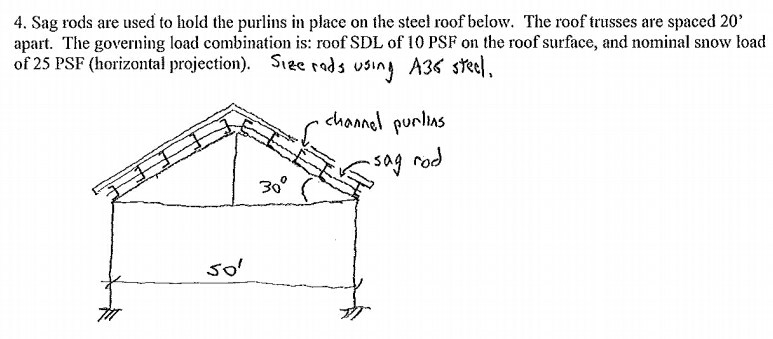 4. Sag rods are used to hold the purlins in place on the steel roof below. The roof trusses are spaced 20’
apart. The governing load combination is: roof SDL of 10 PSF on the roof surface, and nominal snow load
of 25 PSF (horizontal projection). Size rods using A36 steel.
channel purlins
sag rod
30°
50'